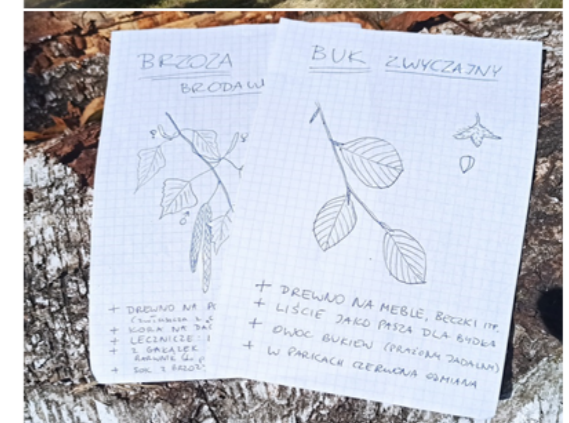 BRZOZA
BRODAW
+ DREWNO NA
+ KORA NA DAC
+ LECZNICZE:
+ Z GAŁĄZEK
+ SOK Z BRZOZ
BUK ZWYCZAJNY
+ DREWNO NA MEBLE, BECZKI ITP.
+ LIŚCIE JAKO PASZA DLA BYDŁA
+ OWOC BUKIEW (PRAŻONY JADALNY)
+ W PARKACH CZERWONA ODMIANA